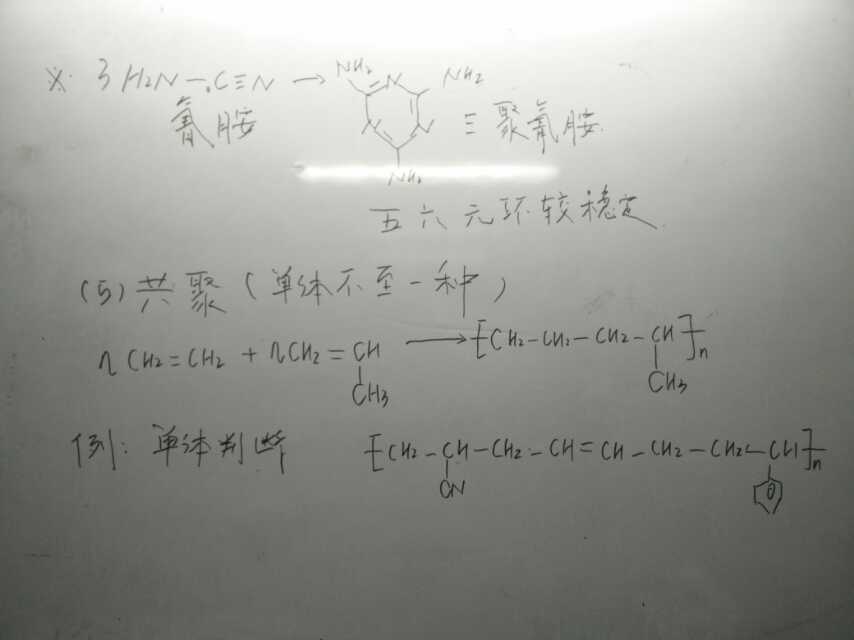 ※. 3 H2N-C≡N → NH2 N NH2 N N NH2
氰胺 三聚氰胺.
五六元环较稳定.
(5) 共聚（单体不至一种）
nCH2=CH2 + nCH2=CH → [CH2-CH2-CH2-CH]n
CH3 CH3
例: 单体判断 [CH2-CH-CH2-CH=CH-CH2-CH2-CH]n
CN